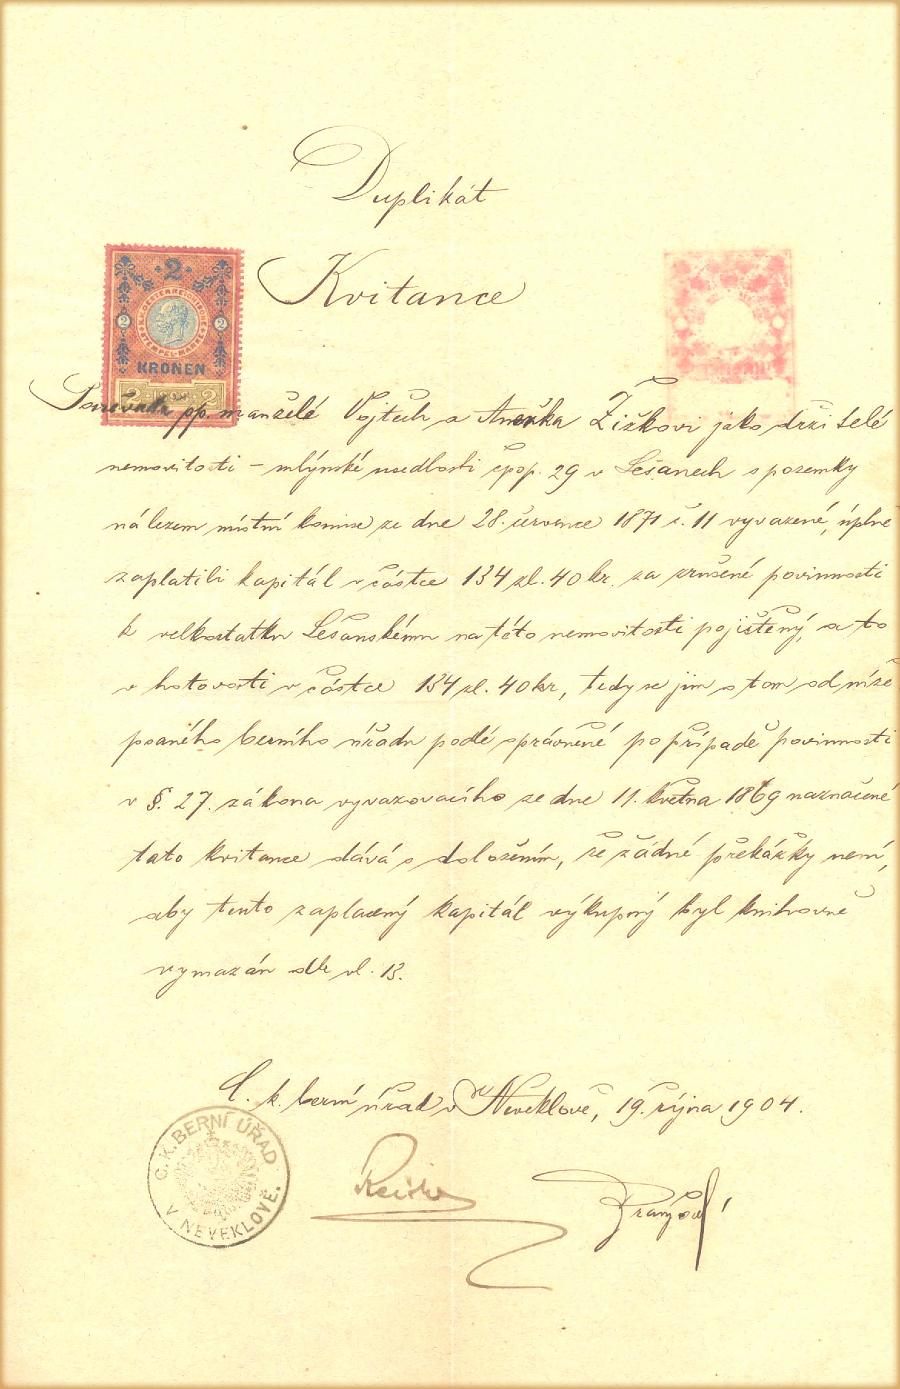 Duplikát
Kvitance
2
KRONEN
2 2
pp. manželé Vojtěch a Anežka Žižkovi jako drži telé
nemovitosti – mlýnské usedlosti čpop. 29 v Lešanech s pozemky
nálezem místní komise ze dne 28. července 1871 č. 11 vyvazené, úplně
zaplatili kapitál v částce 134 zl. 40 kr. za zrušené povinnosti
k velkostatku Lešanskému na této nemovitosti pojištěný, a to
v hotovosti v částce 134 zl. 40 kr, tedy se jim o tom od níže
psaného berního úřadu podlé správné po případě povinnosti
v §. 27. zákona vyvazovacího ze dne 11. května 1869 naznačené
tato kvitance dává s doložením, že žádné překážky není,
aby tento zaplacený kapitál výkupný byl knihovně
vymazán dle vl. 13.
C. k. berní úřad v Neveklově, 19. října 1904.
C. K. BERNÍ ÚŘAD
V NEVEKLOVĚ.